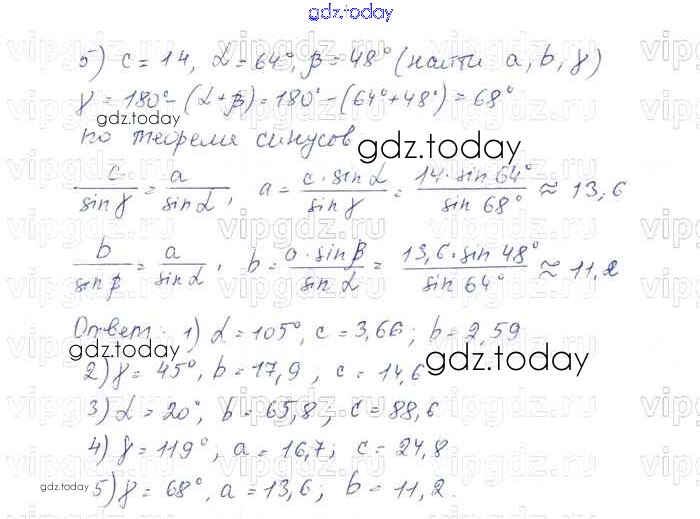 gdz.today
5) c = 14, α = 64°, β = 48° (найти a, b, γ)
γ = 180° - (α + β) = 180° - (64° + 48°) = 68°
gdz.today
по теореме синусов
gdz.today
c/sin γ = a/sin α, a = c · sin α/sin γ = 14 · sin 64°/sin 68° ≈ 13,6
b/sin β = a/sin α, b = a · sin β/sin α = 13,6 · sin 48°/sin 64° ≈ 11,2
Ответ: 1) α = 105°, c = 3,66; b = 2,59
gdz.today gdz.today
2) γ = 45°, b = 17,9; c = 14,6
3) α = 20°, b = 65,8; c = 88,6
4) γ = 119°; a = 16,7; c = 24,8
gdz.today
5) γ = 68°, a = 13,6; b = 11,2.
vipgdz.ru